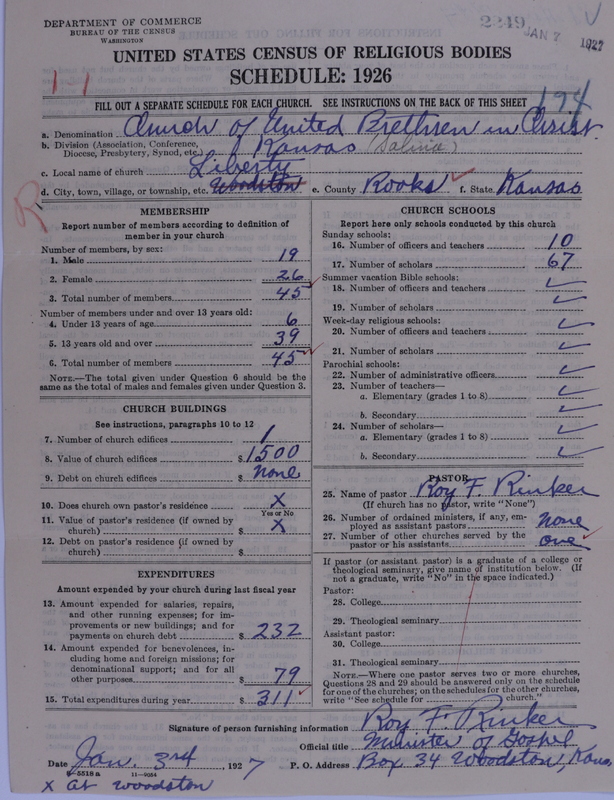 DEPARTMENT OF COMMERCE
BUREAU OF THE CENSUS
WASHINGTON
2249 JAN 7 1927
UNITED STATES CENSUS OF RELIGIOUS BODIES
SCHEDULE: 1926
131
FILL OUT A SEPARATE SCHEDULE FOR EACH CHURCH. SEE INSTRUCTIONS ON THE BACK OF THIS SHEET
194
a. Denomination Church of United Brethren in Christ
b. Division (Association, Conference, Diocese, Presbytery, Synod, etc.) Kansas (Salina)
c. Local name of church Liberty
d. City, town, village, or township, etc. Woodston e. County Rooks f. State Kansas
R
MEMBERSHIP
Report number of members according to definition of
member in your church
Number of members, by sex:
1. Male 19
2. Female 26
3. Total number of members 45
Number of members under and over 13 years old:
4. Under 13 years of age 6
5. 13 years old and over 39
6. Total number of members 45
NOTE.—The total given under Question 6 should be the
same as the total of males and females given under Question 3.
CHURCH BUILDINGS
See instructions, paragraphs 10 to 12
7. Number of church edifices 1
8. Value of church edifices $ 1500
9. Debt on church edifices $ None
10. Does church own pastor's residence X
Yes or No
11. Value of pastor's residence (if owned by
church) $ X
12. Debt on pastor's residence (if owned by
church) $
EXPENDITURES
Amount expended by your church during last fiscal year
13. Amount expended for salaries, repairs,
and other running expenses; for im-
provements or new buildings; and for
payments on church debt $ 232
14. Amount expended for benevolences, in-
cluding home and foreign missions; for
denominational support; and for all
other purposes $ 79
15. Total expenditures during year $ 311
CHURCH SCHOOLS
Report here only schools conducted by this church
Sunday schools:
16. Number of officers and teachers 10
17. Number of scholars 67
Summer vacation Bible schools:
18. Number of officers and teachers
19. Number of scholars
Week-day religious schools:
20. Number of officers and teachers
21. Number of scholars
Parochial schools:
22. Number of administrative officers
23. Number of teachers—
a. Elementary (grades 1 to 8)
b. Secondary
24. Number of scholars—
a. Elementary (grades 1 to 8)
b. Secondary
PASTOR
25. Name of pastor Roy F. Rinker
(If church has no pastor, write "None")
26. Number of ordained ministers, if any, em-
ployed as assistant pastors none
27. Number of other churches served by the
pastor or his assistants one
If pastor (or assistant pastor) is a graduate of a college or
theological seminary, give name of institution below. (If
not a graduate, write "No" in the space indicated.)
Pastor:
28. College
29. Theological seminary
Assistant pastor:
30. College
31. Theological seminary
NOTE.—Where one pastor serves two or more churches,
Questions 28 and 29 should be answered only on the schedule
for one of the churches; on the schedules for the other churches,
write "See schedule for church."
Signature of person furnishing information Roy F. Rinker
Official title Minister of Gospel
Date Jan. 3rd, 1927 P. O. Address Box 34 Woodston, Kans,
8-5518 a 11-9084
X at Woodston